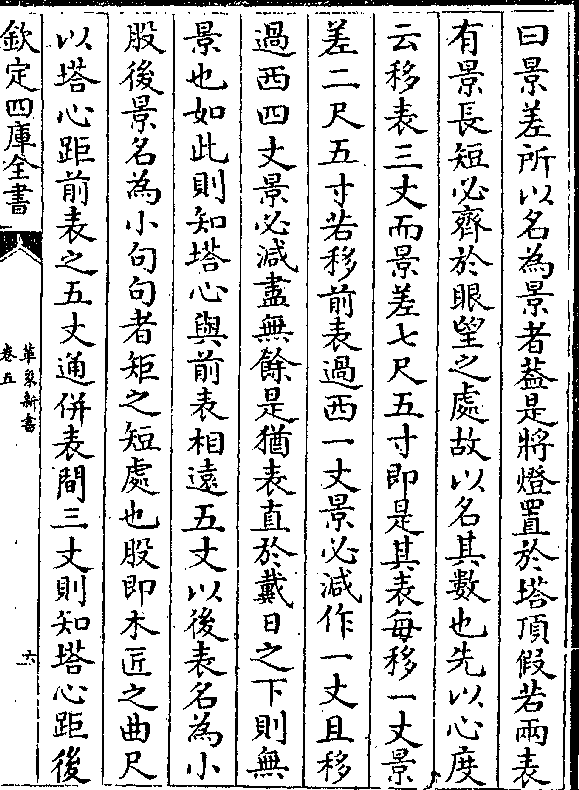 曰景差所以名為景者葢是將燈置於塔頂假若兩表
有景長短必齊於眼望之處故以名其數也先以心度
云移表三丈而景差七尺五寸即是其表每移一丈景
差二尺五寸若移前表過西一丈景必減作一丈且移
過西四丈景必減盡無餘是猶表直於戴日之下則無
景也如此則知塔心與前表相遠五丈以後表名為小
股後景名為小句句者矩之短處也股即木匠之曲尺
以塔心距前表之五丈通併表間三丈則知塔心距後
欽定四庫全書
革象新書
卷五
六